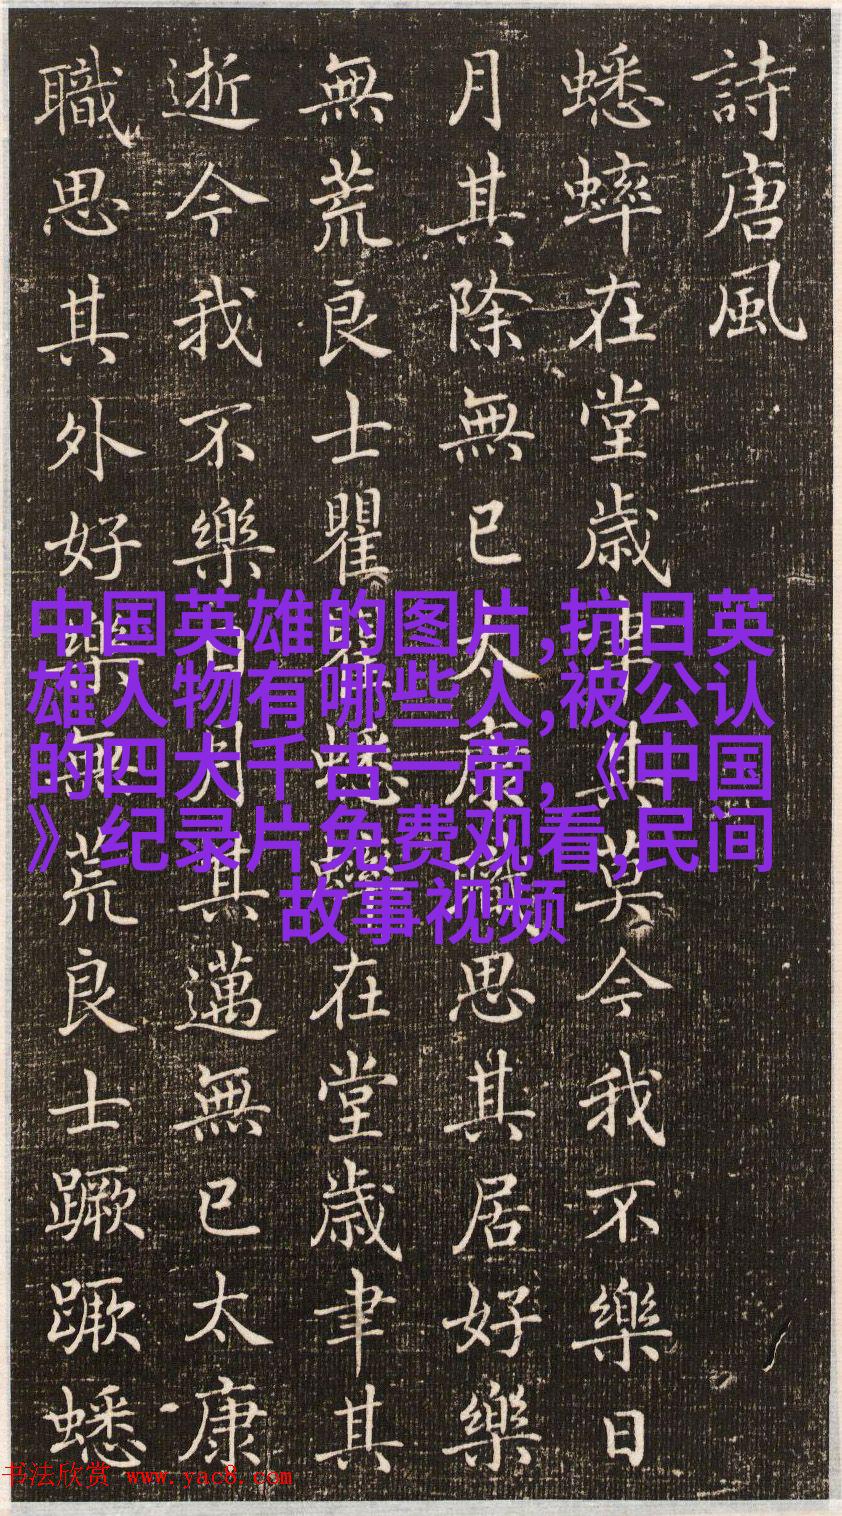 詩唐風
蟋蟀在堂歳聿其莫今我不樂日
月其除無已太康職思其居好樂
無荒良士瞿瞿蟋蟀在堂歳聿其
逝今我不樂日月其邁無已太康
職思其外好樂無荒良士蹶蹶蟋
中国英雄的图片,抗日英
雄人物有哪些人,被公认
的四大千古一帝,《中国
》纪录片免费观看,民间
故事视频
书法欣赏 www.yac8.com